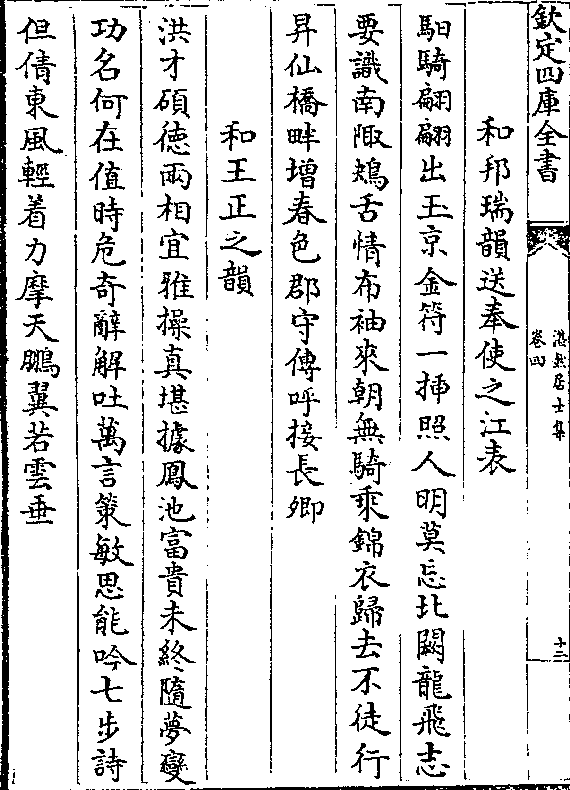 欽定四庫全書
湛然居士集
卷四
十二
和邦瑞韻送奉使之江表
馹騎翩翩出玉京金符一揷照人明莫忘北闕龍飛志
要識南陬鴂舌情布袖來朝無騎乘錦衣歸去不徒行
昇仙橋畔增春色郡守傳呼接長卿
和王正之韻
洪才碩徳兩相宜雅操真堪據鳳池富貴未終隨夢變
功名何在值時危奇辭解吐萬言策敏思能吟七歩詩
但倩東風輕着力摩天鵬翼若雲垂